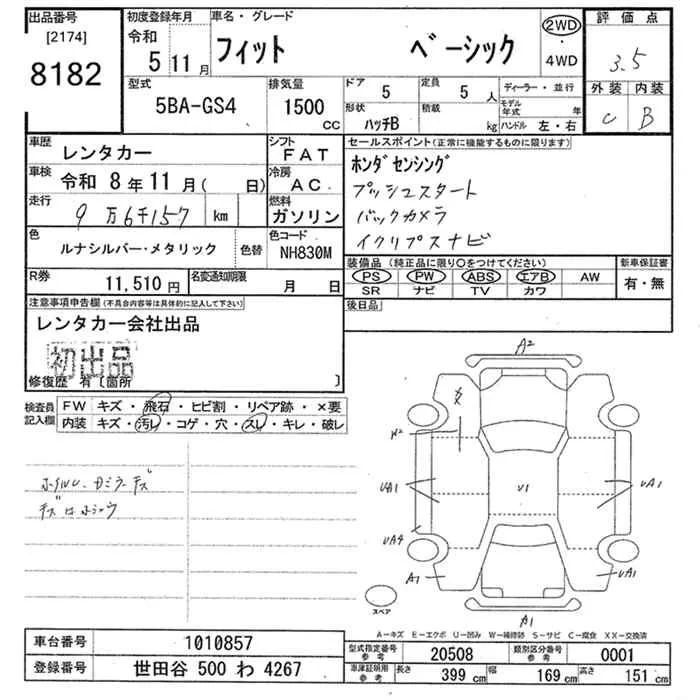 出品番号
[2174]
8182
初度登録年月
令和
5 11 月
車名・グレード
フィット ベーシック
2WD
・
4WD
評価点
3.5
外装 内装
C B
型式
5BA-GS4
排気量
1500
CC
ドア
5
定員
5 人
形状
ハッチB
積載
kg
ディーラー・並行
モデル年式 年
ハンドル 左・右
車歴
レンタカー
シフト
FAT
車検
令和 8年11月( 日)
冷房
AC
走行
9万6千157 km
燃料
ガソリン
色
ルナシルバー・メタリック
色替
色コード
NH830M
R券
11,510 円
名変通知期限
月 日
セールスポイント(正常に機能するものに限ります)
ホンダセンシング
プッシュスタート
バックカメラ
イクリプスナビ
装備品(純正品に限り○をつけてください)
PS PW ABS エアB AW
SR ナビ TV カワ
新車保証書
有・無
後日品
注意事項申告欄(不具合内容等は具体的に記入して下さい)
レンタカー会社出品
初出品
修復歴 有〔箇所 〕
検査員
記入欄
FW キズ・飛石・ヒビ割・リペア跡・×要
内装 キズ・汚レ・コゲ・穴・スレ・キレ・破レ
ホイル、カミラーキズ
キズはホショウ
A2
UA1
U1
UA1
UA4
A1
UA1
A1
スペア
A−キズ E−エクボ U−凹み W−補修跡 S−サビ C−腐食 XX−交換済
車台番号 1010857
登録番号 世田谷 500 わ 4267
型式指定番号
参考
20508
類別区分番号
参考
0001
車庫証明用
参考
長さ 399 cm 幅 169 cm 高さ 151 cm